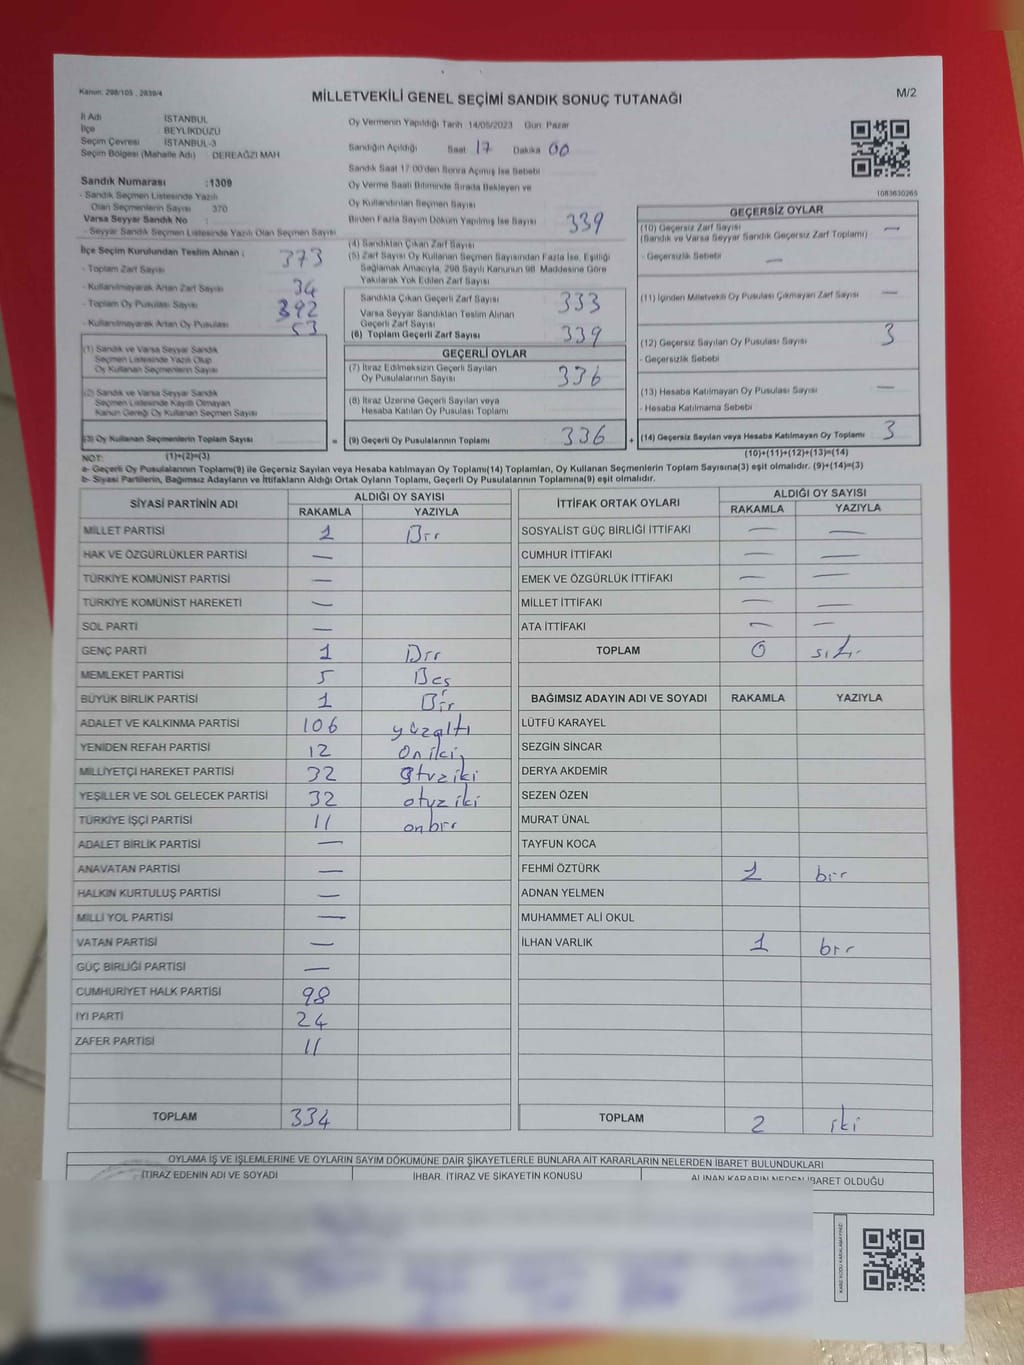 Kanun: 298/105 , 2839/4
MİLLETVEKİLİ GENEL SEÇİMİ SANDIK SONUÇ TUTANAĞI
M/2
İl Adı İSTANBUL
İlçe BEYLİKDÜZÜ
Seçim Çevresi İSTANBUL-3
Seçim Bölgesi (Mahalle Adı) : DEREAĞZI MAH
Sandık Numarası :1309
- Sandık Seçmen Listesinde Yazılı
Olan Seçmenlerin Sayısı 370
Varsa Seyyar Sandık No :
- Seyyar Sandık Seçmen Listesinde Yazılı Olan Seçmen Sayısı
İlçe Seçim Kurulundan Teslim Alınan :
- Toplam Zarf Sayısı 373
- Kullanılmayarak Artan Zarf Sayısı 34
- Toplam Oy Pusulası Sayısı 392
- Kullanılmayarak Artan Oy Pusulası 53
(1) Sandık ve Varsa Seyyar Sandık
Seçmen Listesinde Yazılı Olup
Oy Kullanan Seçmenlerin Sayısı
(2) Sandık ve Varsa Seyyar Sandık
Seçmen Listesinde Kayıtlı Olmayan
Kanun Gereği Oy Kullanan Seçmen Sayısı
(3) Oy Kullanan Seçmenlerin Toplam Sayısı =
Oy Vermenin Yapıldığı Tarih :14/05/2023 Gün: Pazar
Sandığın Açıldığı Saat 17 Dakika 00
Sandık Saat 17:00'den Sonra Açılmış İse Sebebi
Oy Verme Saati Bitiminde Sırada Bekleyen ve
Oy Kullandırılan Seçmen Sayısı
Birden Fazla Sayım Döküm Yapılmış İse Sayısı
339
(4) Sandıktan Çıkan Zarf Sayısı
(5) Zarf Sayısı Oy Kullanan Seçmen Sayısından Fazla İse, Eşitliği
Sağlamak Amacıyla, 298 Sayılı Kanunun 98. Maddesine Göre
Yakılarak Yok Edilen Zarf Sayısı
Sandıkta Çıkan Geçerli Zarf Sayısı 333
Varsa Seyyar Sandıktan Teslim Alınan
Geçerli Zarf Sayısı
(6) Toplam Geçerli Zarf Sayısı 339
GEÇERLİ OYLAR
(7) İtiraz Edilmeksizin Geçerli Sayılan
Oy Pusulalarının Sayısı 336
(8) İtiraz Üzerine Geçerli Sayılan veya
Hesaba Katılan Oy Pusulası Toplamı
(9) Geçerli Oy Pusulalarının Toplamı 336 +
1083630265
GEÇERSİZ OYLAR
(10) Geçersiz Zarf Sayısı —
(Sandık ve Varsa Seyyar Sandık Geçersiz Zarf Toplamı)
- Geçersizlik Sebebi —
(11) İçinden Milletvekili Oy Pusulası Çıkmayan Zarf Sayısı —
(12) Geçersiz Sayılan Oy Pusulası Sayısı 3
- Geçersizlik Sebebi
(13) Hesaba Katılmayan Oy Pusulası Sayısı —
- Hesaba Katılmama Sebebi
(14) Geçersiz Sayılan veya Hesaba Katılmayan Oy Toplamı 3
NOT: (1)+(2)=(3) (10)+(11)+(12)+(13)=(14)
a- Geçerli Oy Pusulalarının Toplamı(9) ile Geçersiz Sayılan veya Hesaba katılmayan Oy Toplamı(14) Toplamları, Oy Kullanan Seçmenlerin Toplam Sayısına(3) eşit olmalıdır. (9)+(14)=(3)
b- Siyasi Partilerin, Bağımsız Adayların ve İttifakların Aldığı Ortak Oyların Toplamı, Geçerli Oy Pusulalarının Toplamına(9) eşit olmalıdır.
SİYASİ PARTİNİN ADI ALDIĞI OY SAYISI
RAKAMLA YAZIYLA
MİLLET PARTİSİ 1 Bir
HAK VE ÖZGÜRLÜKLER PARTİSİ —
TÜRKİYE KOMÜNİST PARTİSİ —
TÜRKİYE KOMÜNİST HAREKETİ —
SOL PARTİ —
GENÇ PARTİ 1 Bir
MEMLEKET PARTİSİ 5 Beş
BÜYÜK BİRLİK PARTİSİ 1 Bir
ADALET VE KALKINMA PARTİSİ 106 yüzaltı
YENİDEN REFAH PARTİSİ 12 Oniki
MİLLİYETÇİ HAREKET PARTİSİ 32 otuziki
YEŞİLLER VE SOL GELECEK PARTİSİ 32 otuziki
TÜRKİYE İŞÇİ PARTİSİ 11 onbir
ADALET BİRLİK PARTİSİ —
ANAVATAN PARTİSİ —
HALKIN KURTULUŞ PARTİSİ —
MİLLİ YOL PARTİSİ —
VATAN PARTİSİ —
GÜÇ BİRLİĞİ PARTİSİ —
CUMHURİYET HALK PARTİSİ 98
İYİ PARTİ 24
ZAFER PARTİSİ 11
TOPLAM 334
İTTİFAK ORTAK OYLARI ALDIĞI OY SAYISI
RAKAMLA YAZIYLA
SOSYALİST GÜÇ BİRLİĞİ İTTİFAKI — —
CUMHUR İTTİFAKI — —
EMEK VE ÖZGÜRLÜK İTTİFAKI — —
MİLLET İTTİFAKI — —
ATA İTTİFAKI — —
TOPLAM 0 sıfır
BAĞIMSIZ ADAYIN ADI VE SOYADI RAKAMLA YAZIYLA
LÜTFÜ KARAYEL
SEZGİN SİNCAR
DERYA AKDEMİR
SEZEN ÖZEN
MURAT ÜNAL
TAYFUN KOCA
FEHMİ ÖZTÜRK 1 bir
ADNAN YELMEN
MUHAMMET ALİ OKUL
İLHAN VARLIK 1 bir
TOPLAM 2 iki
OYLAMA İŞ VE İŞLEMLERİNE VE OYLARIN SAYIM DÖKÜMÜNE DAİR ŞİKAYETLERLE BUNLARA AİT KARARLARIN NELERDEN İBARET BULUNDUKLARI
İTİRAZ EDENİN ADI VE SOYADI İHBAR, İTİRAZ VE ŞİKAYETİN KONUSU ALINAN KARARIN NEDEN İBARET OLDUĞU
KARE KODU KARALAMAYINIZ!